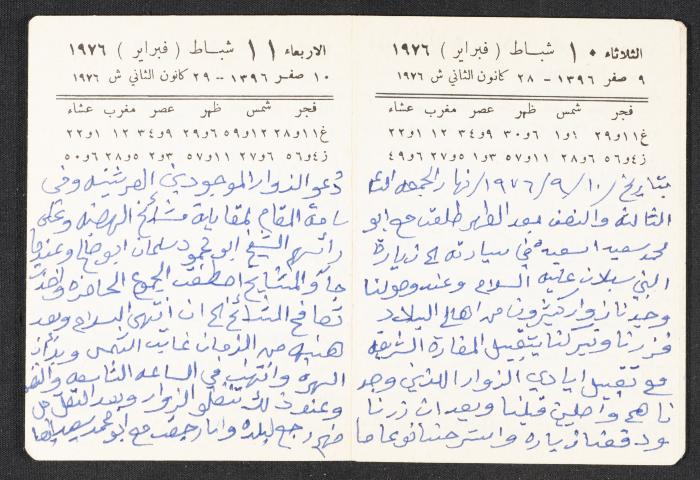 الثلاثاء ١٠ شباط ( فبراير ) ١٩٧٦
٩ صفر ١٣٩٦ - ٢٨ كانون الثاني ش ١٩٧٦
فجر شمس ظهر عصر مغرب عشاء
غ ١١و٢٩ ١و١ ٦و٣٠ ٩و٣٤ ١٢ ١و٢٢
ز ٤و٥٦ ٦و٢٨ ١١و٥٧ ٣و١ ٥و٢٧ ٦و٤٩
بتاريخ /١٠/٩/١٩٧٦ نهار الجمعه
الثالثة والنصف بعد الظهر طلعت مع ابو
محمد سعيد اسعيد في سيارته الى زيارة
النبي سبلان عليه السلام وعند وصولنا
وجدنا زوار كثيرون من اهالي البلاد
فزرنا وتبركنا بتقبيل المغارة الشريفه
مع تقبيل ايادي الزوار اللذين وجد
ناهم واصلين قبلنا وبعد ان زرنا
ودفعنا زياره واسترحنا نوعا ما
الاربعاء ١١ شباط ( فبراير ) ١٩٧٦
١٠ صفر ١٣٩٦ - ٢٩ كانون الثاني ش ١٩٧٦
فجر شمس ظهر عصر مغرب عشاء
غ ١١و٢٨ ١٢و٥٩ ٦و٢٩ ٩و٣٤ ١٢ ١و٢٢
ز ٤و٥٦ ٦و٢٧ ١١و٥٧ ٣و٢ ٥و٢٨ ٦و٥٠
دعو الزوار الموجودين العرشيه وفي
ساحة المقام لمقابلة مشايخ الهضبه وعلى
رأسهم الشيخ ابو محمود سلمان ابو صالح وعندما
جاؤ المشايخ اصطفت الجموع الحاضره واخذ
تصافح المشائخ الى ان انتهى السلام وبعد
هنيهه من الزمان غابت الشمس وبدأت
السهره وانتهت في الساعه التاسعه والنصف
وعند ذلك تنقلو الزوار وبعد النقل كل
منهم رجع لبلده وانا رجعت مع ابو محمد سعيد